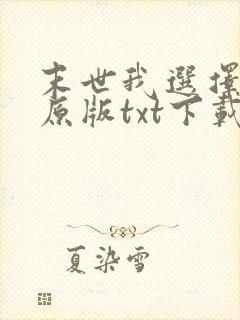 末世我選擇
原版txt下載
夏染雪